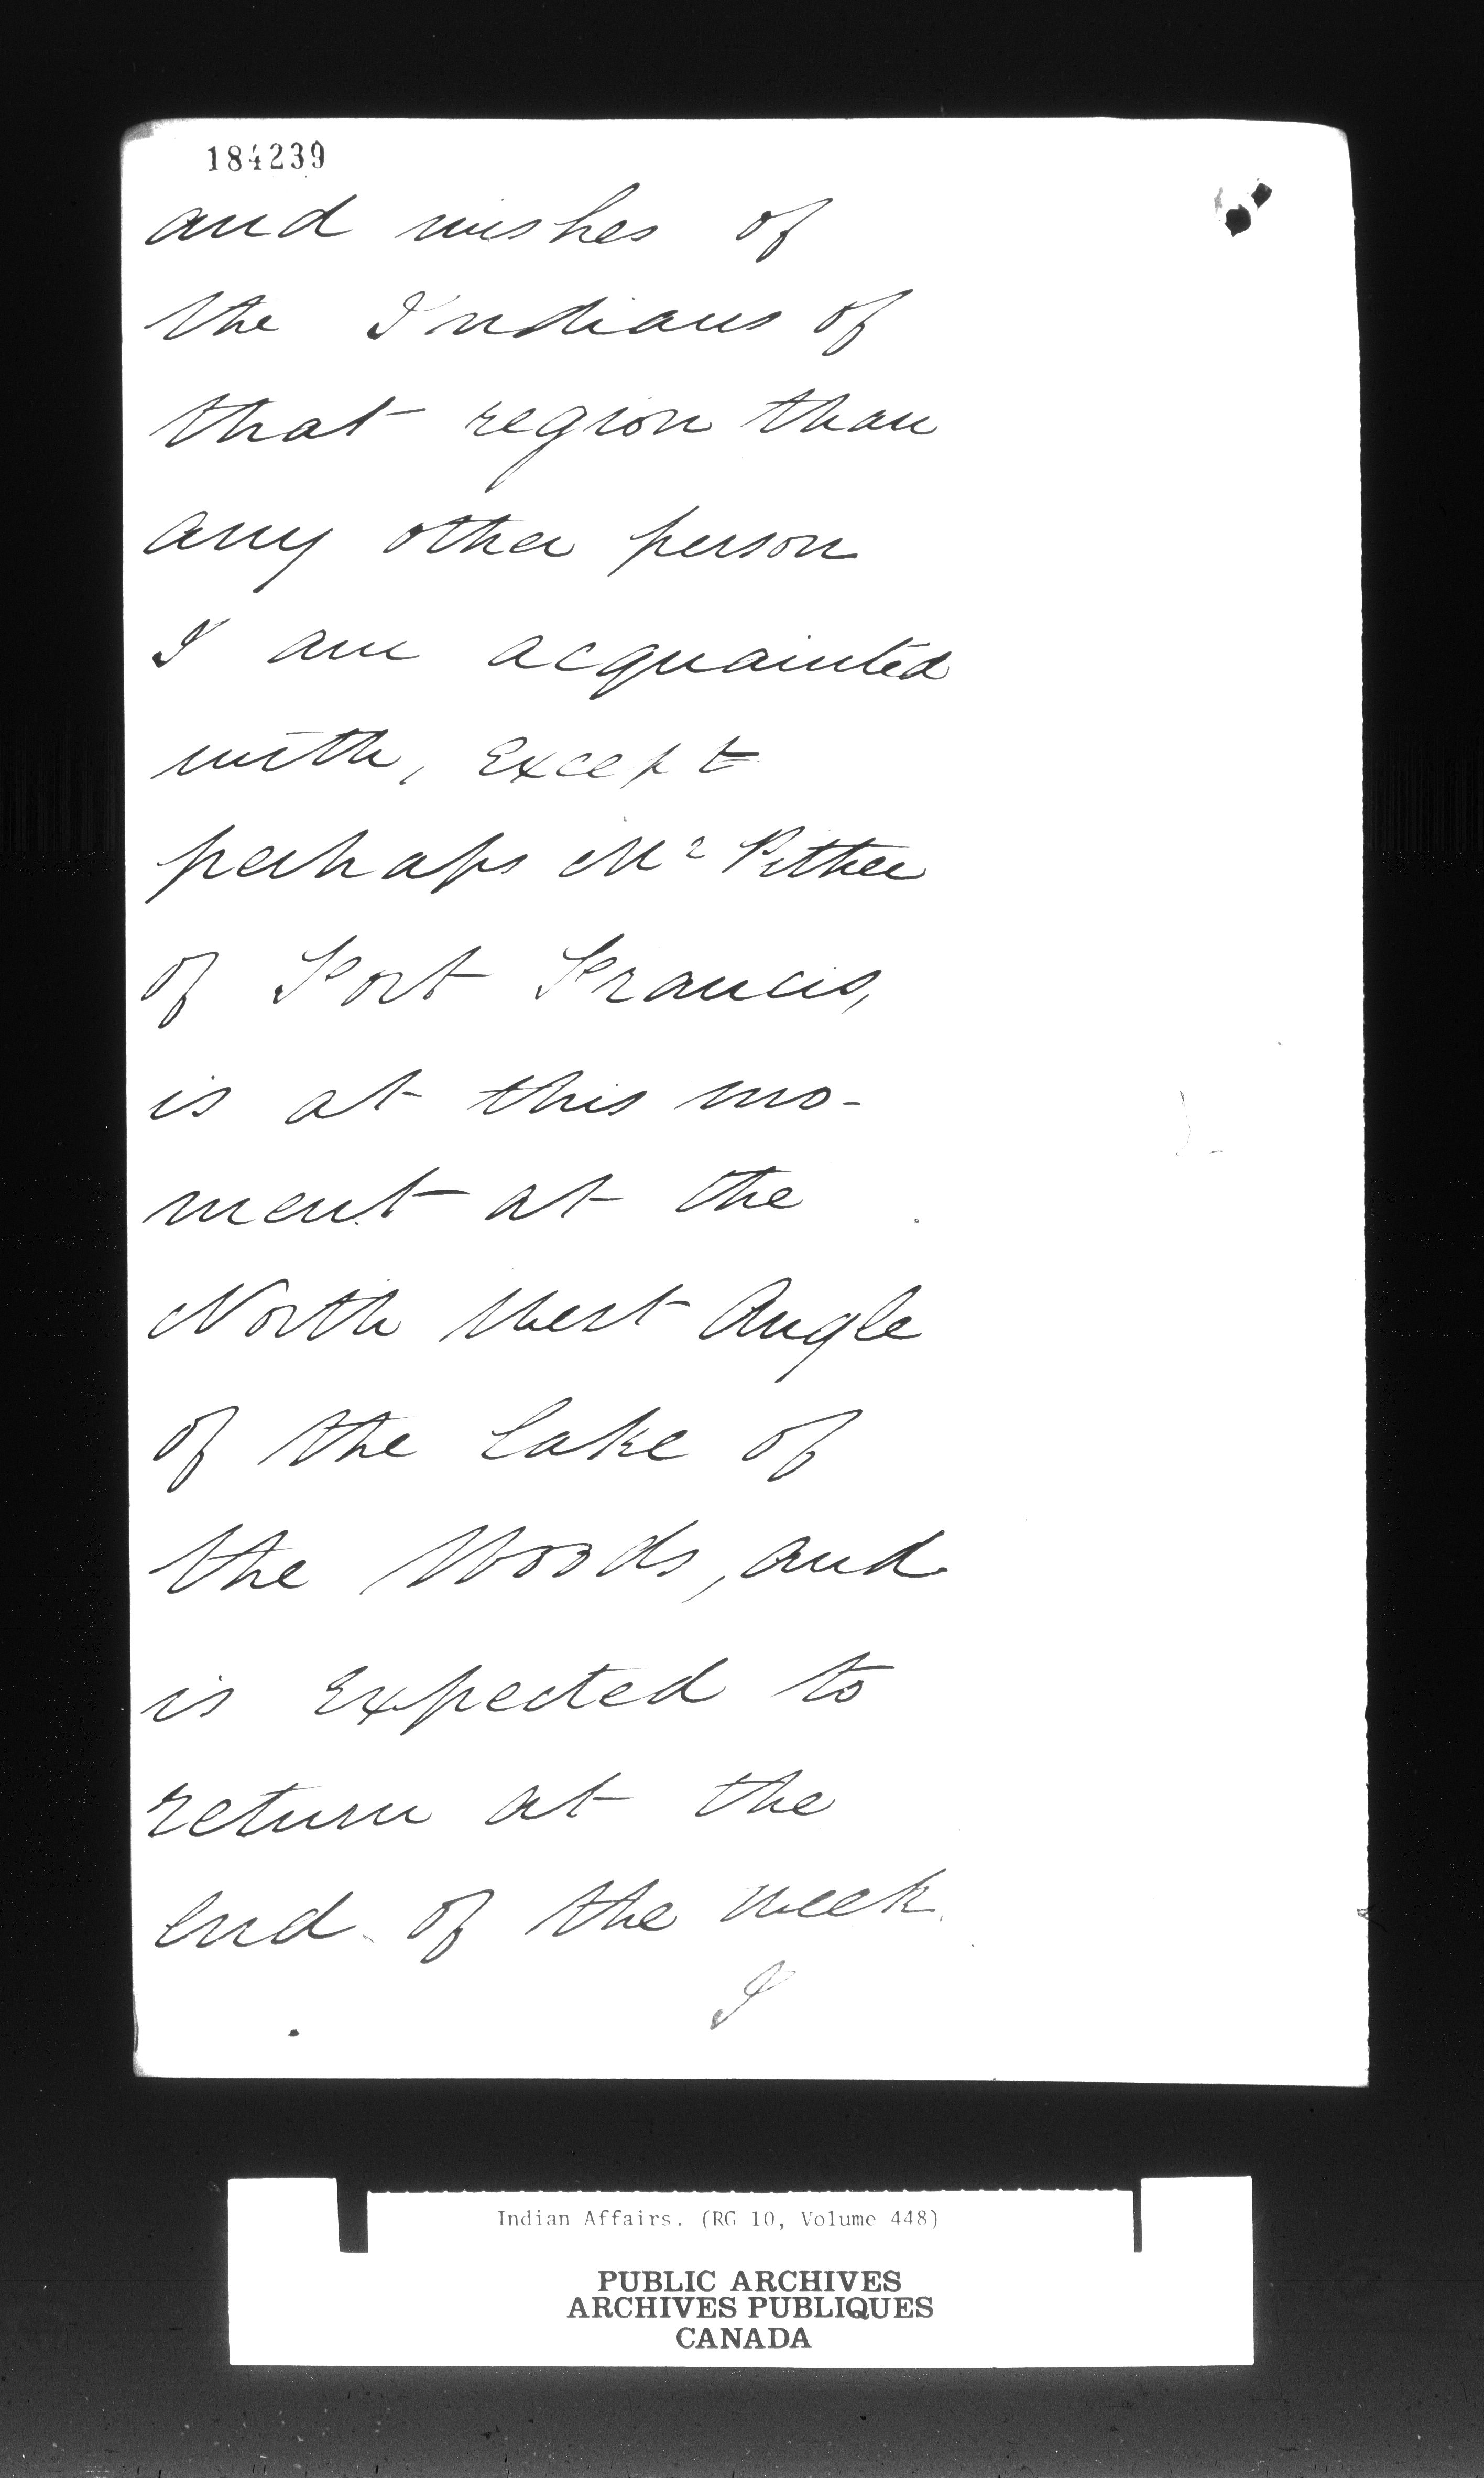 184239
and wishes of
the Indians of
that region than
any other person
I am acquainted
with, except
perhaps Mr Pither
of Fort Francis,
is at this mo-
ment at the
North West Angle
of the lake of
the Woods, and
is expected to
return at the
end of the week.
I
Indian Affairs. (RG 10, Volume 448)
PUBLIC ARCHIVES
ARCHIVES PUBLIQUES
CANADA